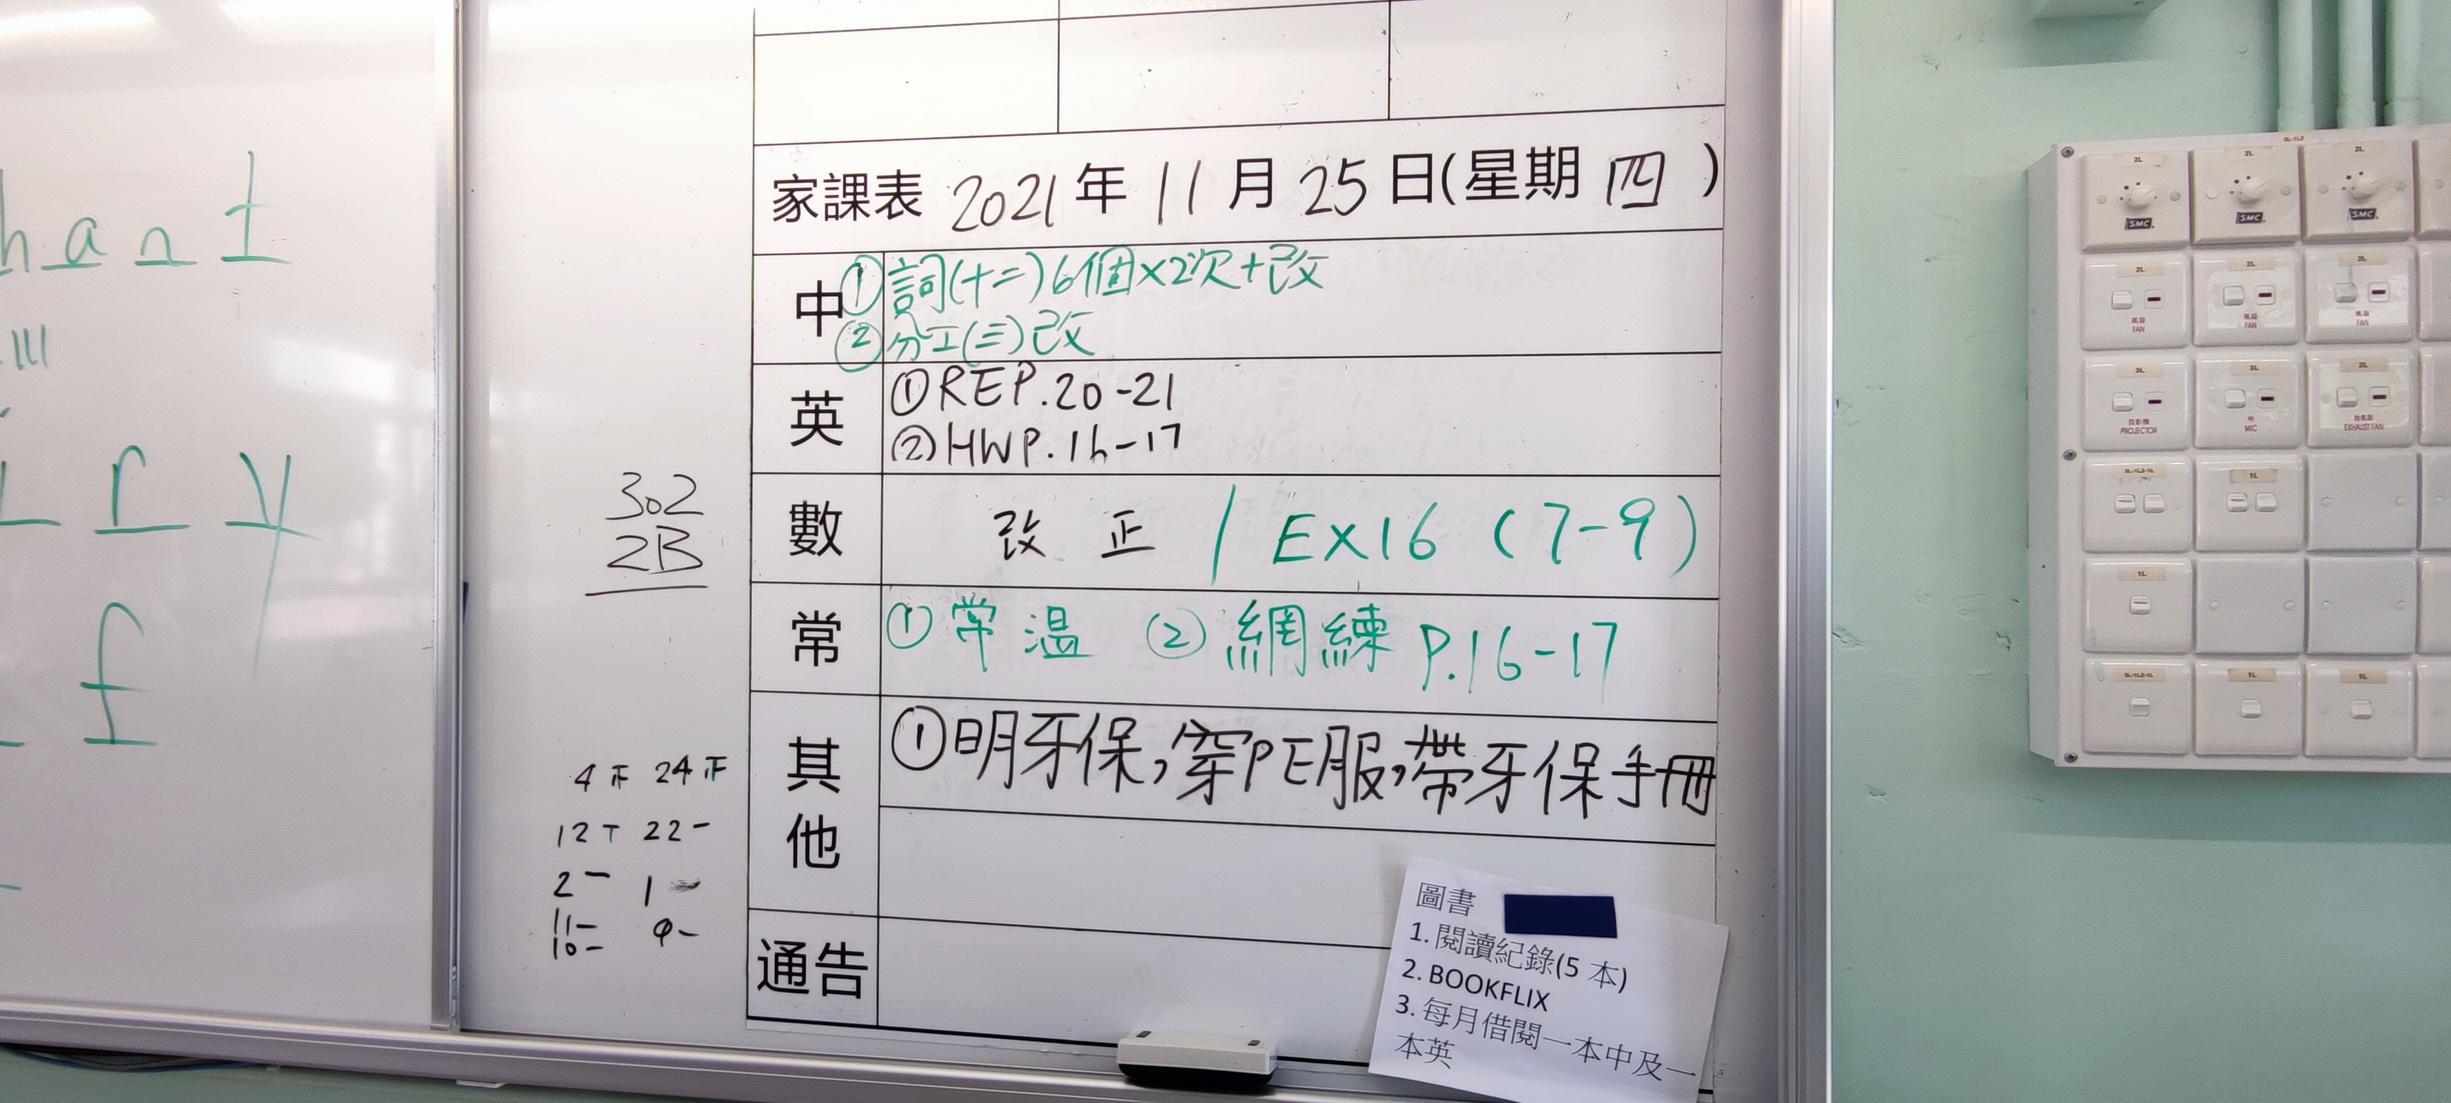 hant
ry
f
302
2B
4 正 24 正
12 T 22 一
2 一 1
11 一
10 一 9 一
家課表 2021 年 11 月 25 日(星期 四 )
中
① 詞(十二)6個×2次+改
② 分工(三)改
英
① REP.20-21
② HWP.16-17
數
改 正 / EX16 (7-9)
常
① 常 溫 ② 網 練 P.16-17
其他
① 明牙保,穿PE服,帶牙保手冊
通告
圖書
1. 閱讀紀錄(5 本)
2. BOOKFLIX
3. 每月借閱一本中及一
本英
2L 2L 2L
SMC SMC SMC
2L 2L 2L
風扇 風扇 風扇
FAN FAN FAN
3L 3L 2L
投影機 抽氣扇
PROJECTOR MIC EXHAUST FAN
1L
1L
1L 1L